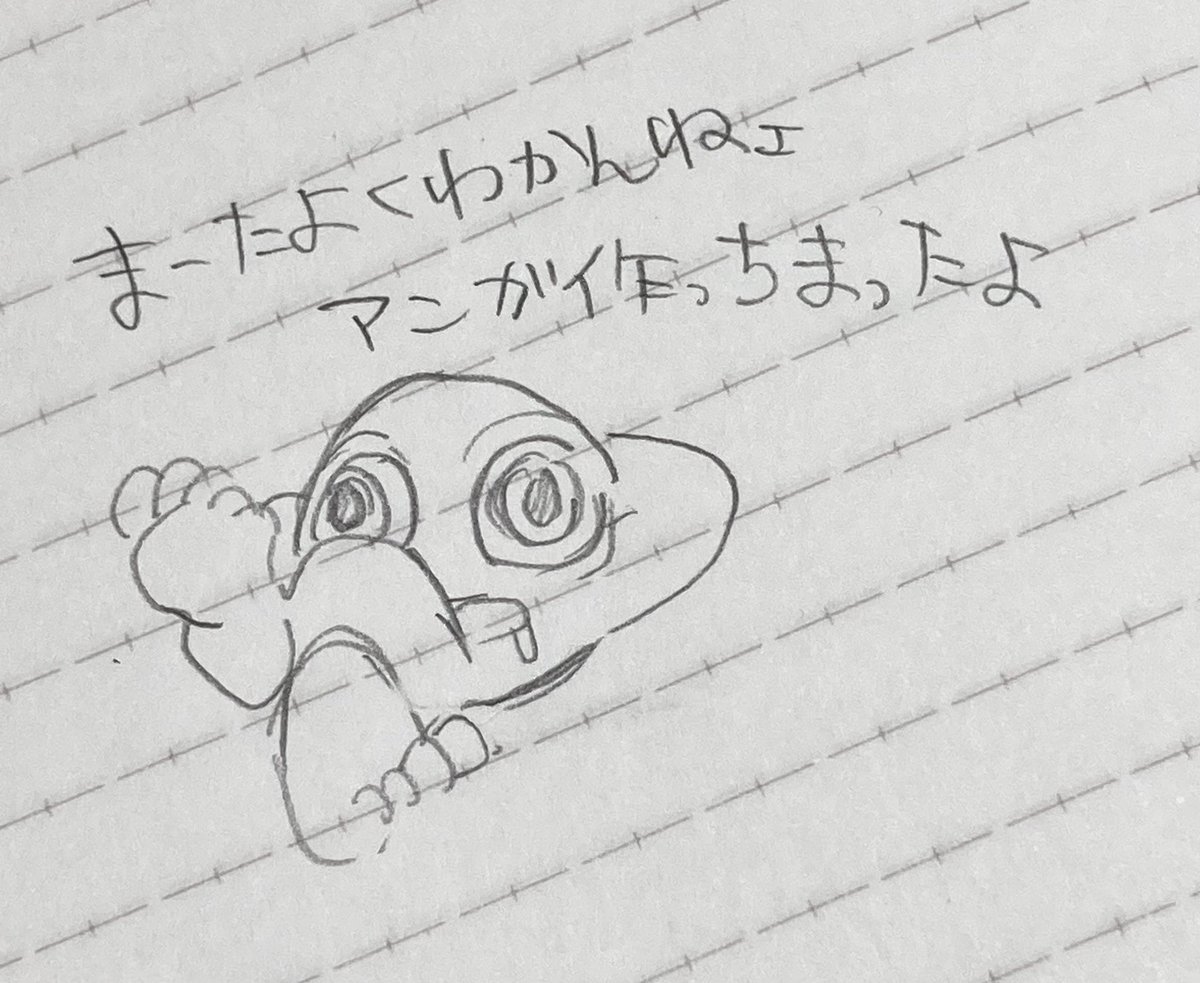 まーたよくわかんねェ
マンガ作っちまったよ